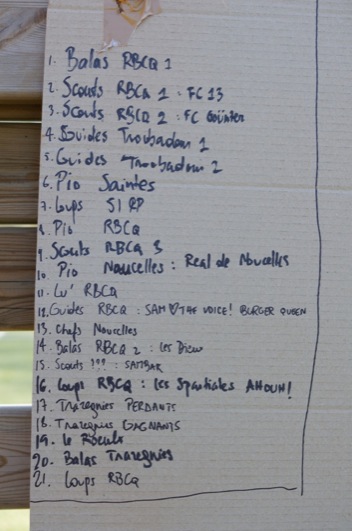 1. Balas RBCQ 1
2. Scouts RBCQ 1 : FC 13
3. Scouts RBCQ 2 : FC Günter
4. Guides Troubadour 1
5. Guides Troubadour 2
6. Pio Saintes
7. Loups SIRP
8. Pio RBCQ
9. Scouts RBCQ 3
10. Pio Noucelles : Real de Noucelles
11. Lu' RBCQ
12. Guides RBCQ : SAM ♡ THE VOICE! BURGER QUEEN
13. Chefs Noucelles
14. Balas RBCQ 2 : les Dieux
15. Scouts ??? : SAMBAR
16. Loups RBCQ : les Spartiates AHOUH!
17. Trazegnies PERDANTS
18. Trazegnies GAGNANTS
19. le Roeulx
20. Balas Trazegnies
21. Loups RBCQ